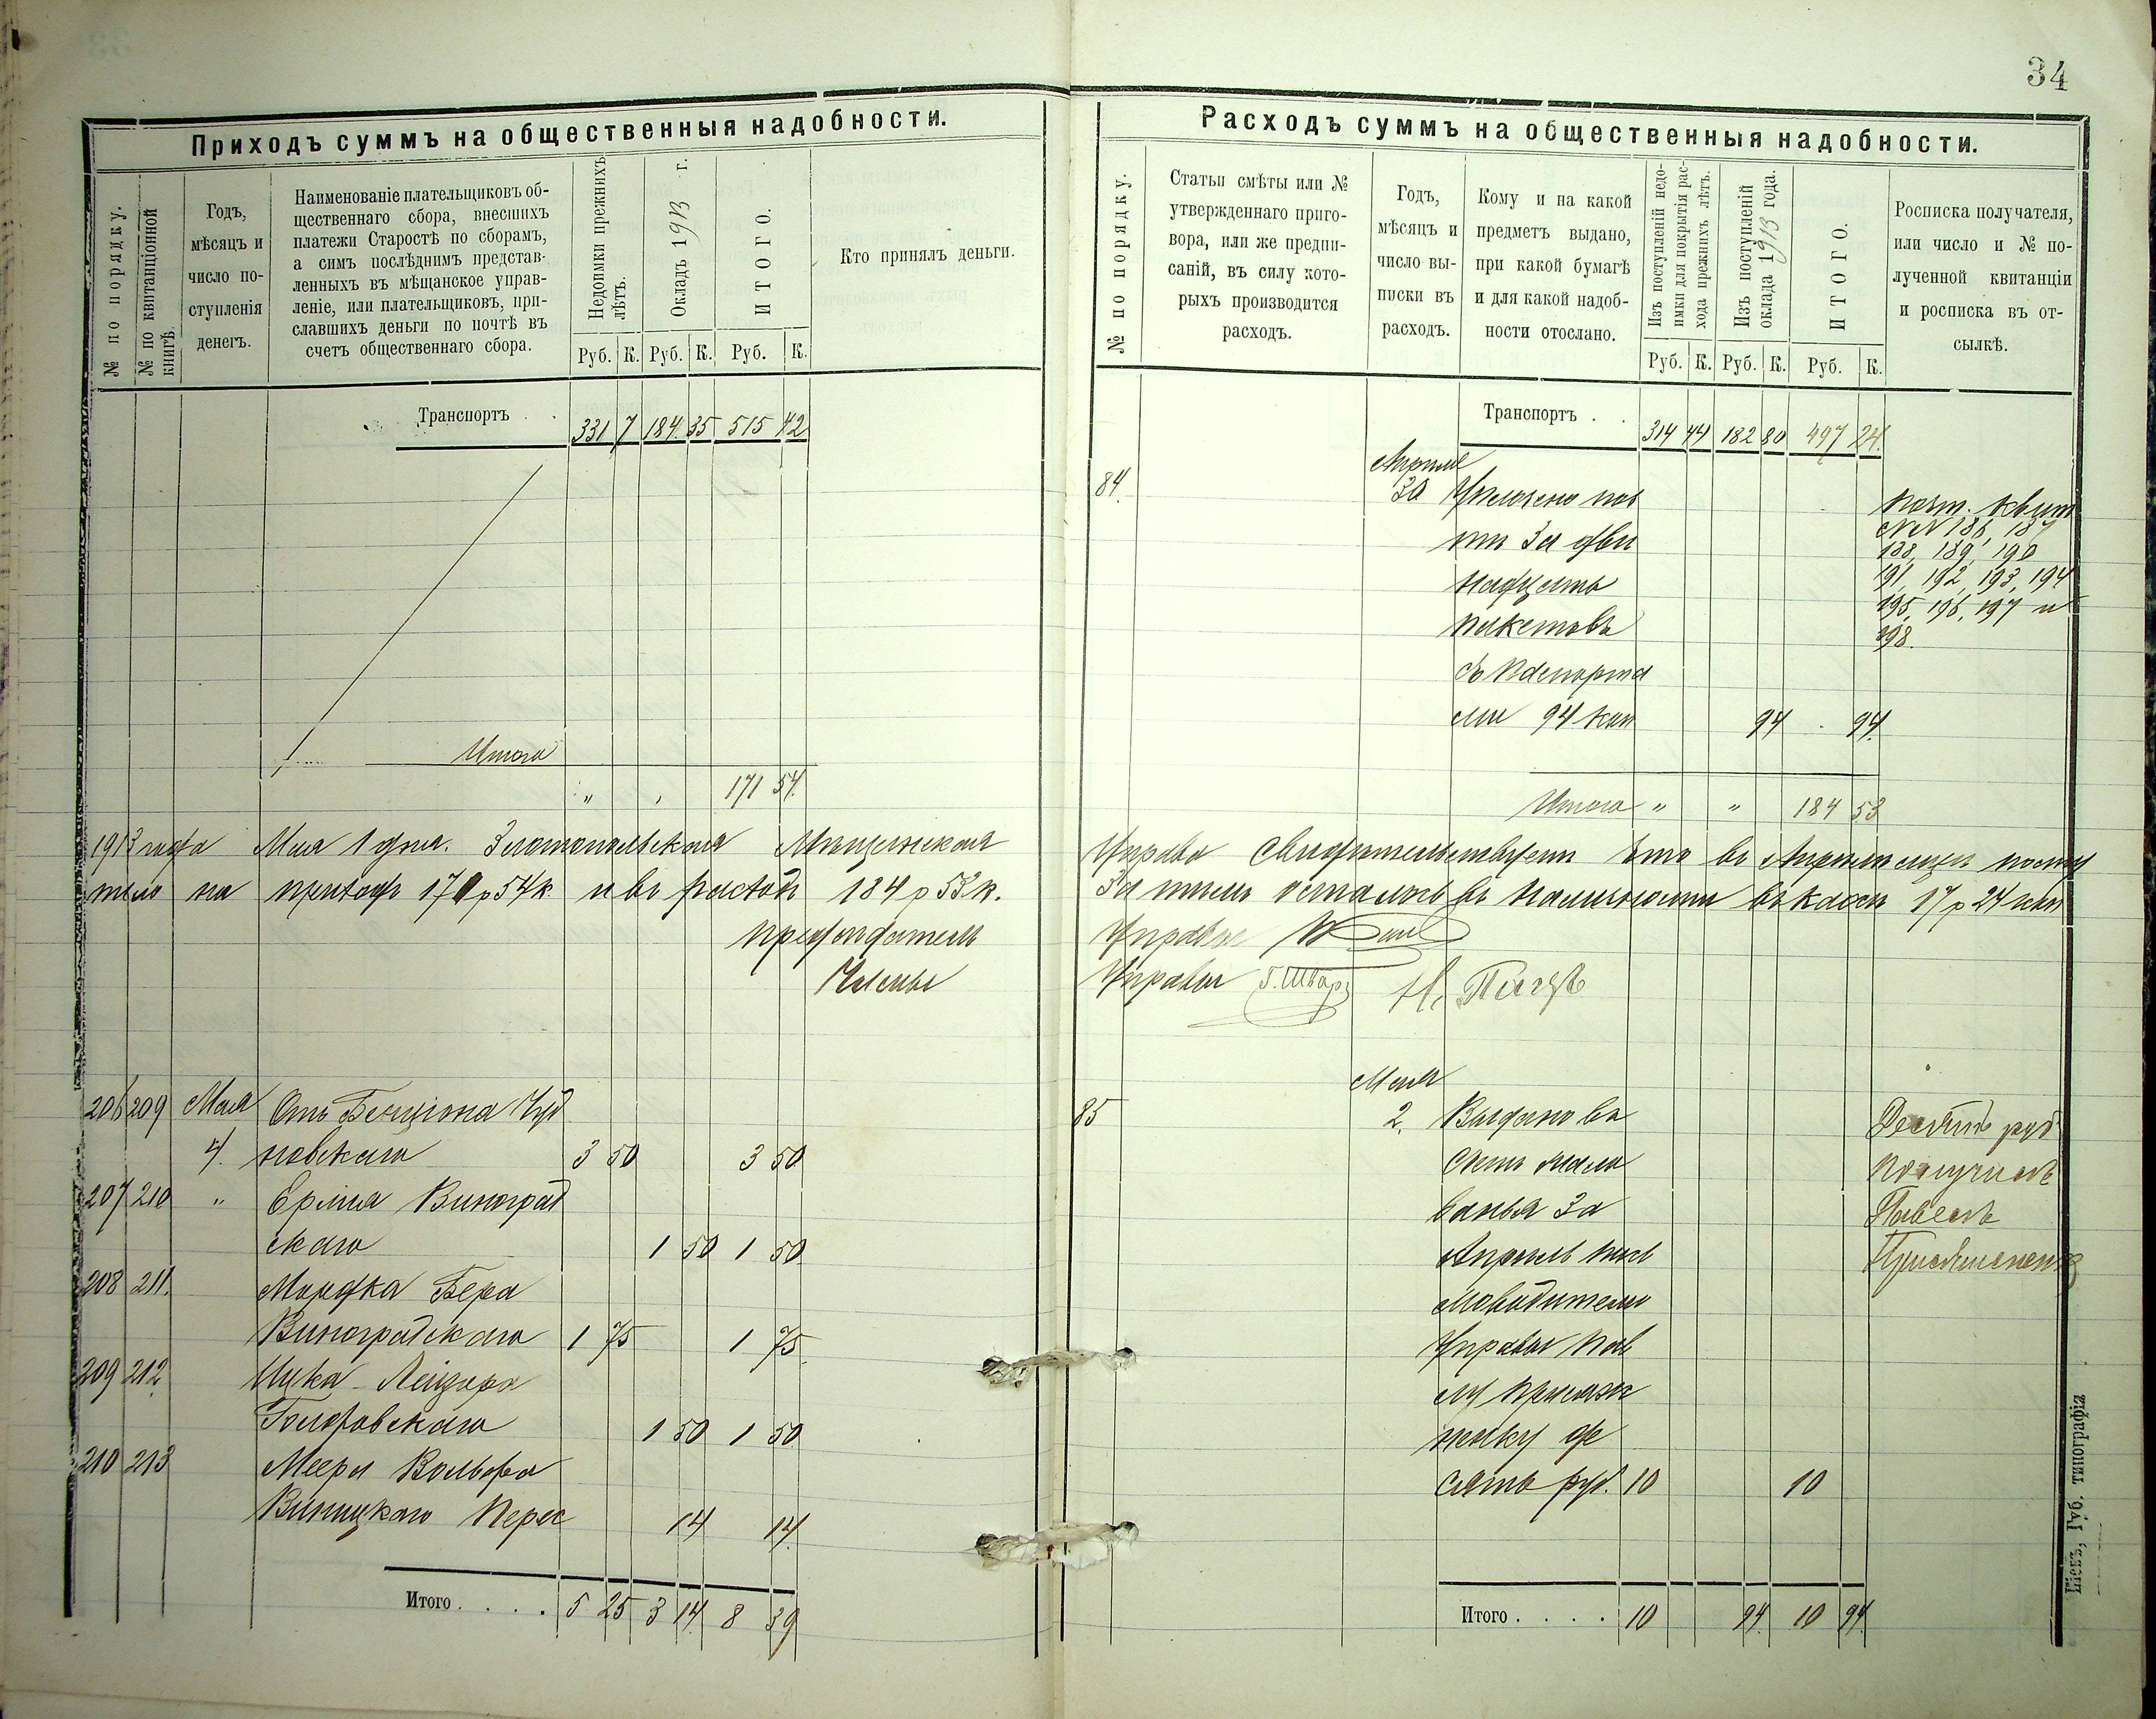 34
Приходъ суммъ на общественныя надобности.
№ по порядку.
№ по квитанціонной
книгѣ.
Годъ,
мѣсяцъ и
число по-
ступленія
денегъ.
Наименованіе плательщиковъ об-
щественнаго сбора, внесшихъ
платежи Старостѣ по сборамъ,
а симъ послѣднимъ представ-
ленныхъ въ мѣщанское управ-
леніе, или плательщиковъ, при-
славшихъ деньги по почтѣ въ
счетъ общественнаго сбора.
Недоимки прежнихъ
лѣтъ.
Окладъ 1913 г.
ИТОГО.
Кто принялъ деньги.
Руб. К. Руб. К. Руб. К.
Транспортъ . . 331 7 184 35 515 42
Итого
" " 171 54
1913 года Мая 1 дня. Златопольская Мѣщанская
пило на приходъ 171 р 54 к. и въ расходъ 184 р 53 к.
Предсѣдатель
Члены
206 209 Мая Отъ Бенціона Чуд
4. новскаго 3 50 3 50
207 210 " Ермія Виноград
скаго 1 50 1 50
208 211. Мордка Бера
Виноградскаго 1 75 1 75
209 212 Ицка Лейзора
Голодовскаго 1 50 1 50
210 213 Меера Вольфа
Виницкаго Перес 14 14
Итого . . . . 5 25 3 14 8 39
Расходъ суммъ на общественныя надобности.
№ по порядку.
Статьи смѣты или №
утвержденнаго приго-
вора, или же предпи-
саній, въ силу кото-
рыхъ производится
расходъ.
Годъ,
мѣсяцъ и
число вы-
писки въ
расходъ.
Кому и на какой
предметъ выдано,
при какой бумагѣ
и для какой надоб-
ности отослано.
Изъ поступленій недо-
имки для покрытія рас-
хода прежнихъ лѣтъ.
Изъ поступленій
оклада 1913 года.
ИТОГО.
Росписка получателя,
или число и № по-
лученной квитанціи
и росписка въ от-
сылкѣ.
Руб. К. Руб. К. Руб. К.
Транспортъ . . 314 44 182 80 497 24
Апрѣля
84. 30 Уплочено поч
тѣ за две
надцать
пакетовъ
съ паспорта
ми 94 коп 94 94
почт. квит
№№ 186, 187
188, 189, 190
191, 192, 193, 194
195, 196, 197 и
198.
Итого " " 184 53
Управа свидѣтельствуетъ что въ Апрѣлѣ мцѣ посту
За тѣмъ осталось въ наличности въ кассѣ 17 р 24 коп
Управы
Управы Г. Шварц
Мая
85 2. Выдано въ
счетъ жало
ванья за
Апрѣль
Управы Пав
лу
де
сять руб. 10 10
Десять руб
получилъ
Павелъ
Итого . . . . 10 94 10 94
Кіевъ, Губ. типографія